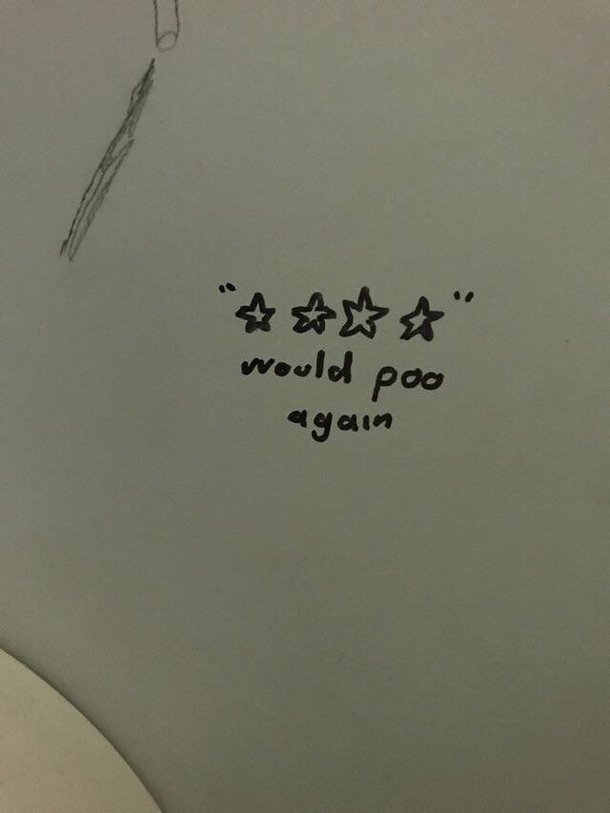 "☆ ☆ ☆ ☆"
would poo
again